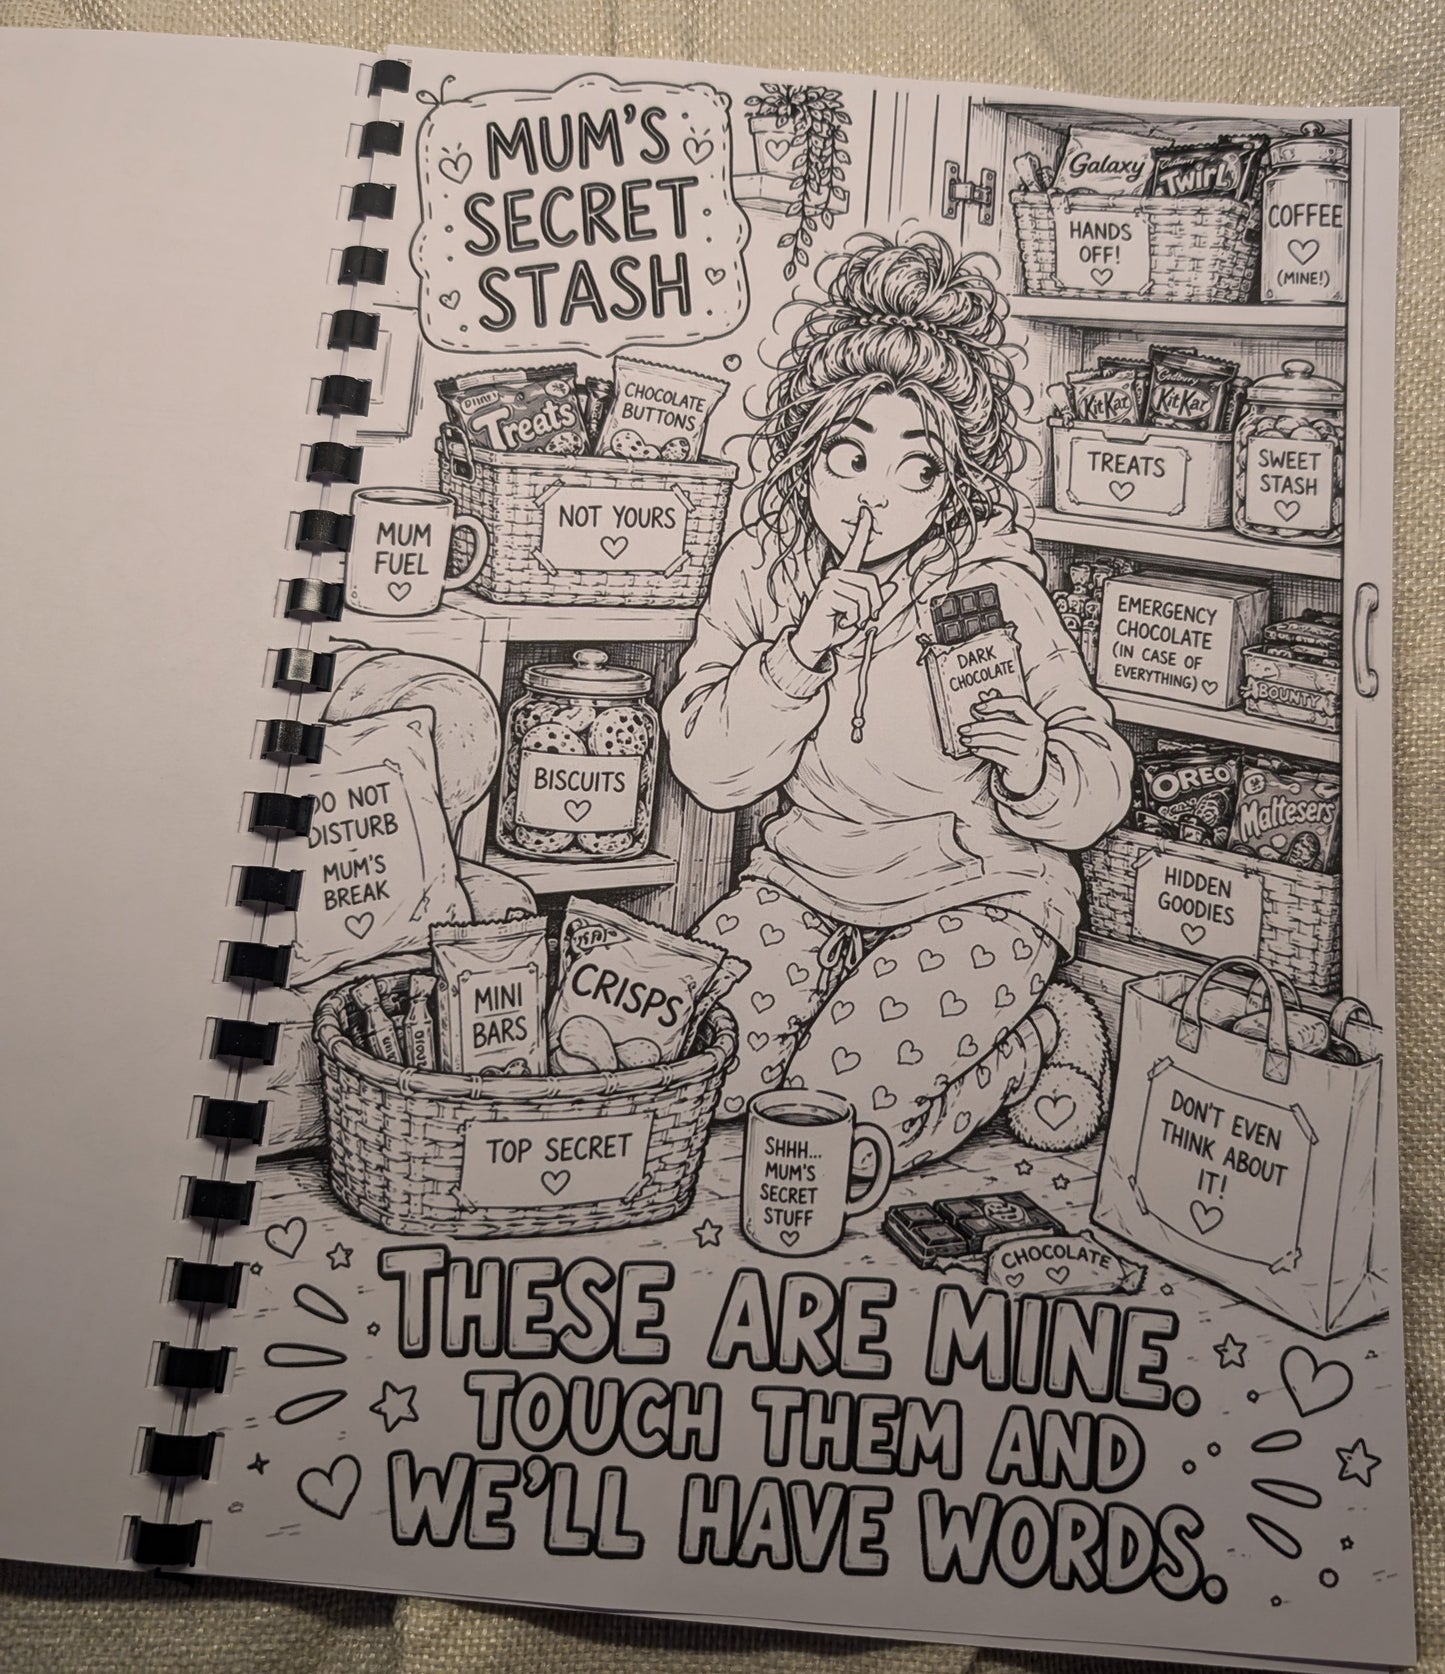 MUM'S
SECRET
STASH
Galaxy
Twirl
HANDS
OFF!
COFFEE
(MINE!)
Treats
CHOCOLATE
BUTTONS
NOT YOURS
MUM
FUEL
KitKat
Cadbury
KitKat
TREATS
SWEET
STASH
EMERGENCY
CHOCOLATE
(IN CASE OF
EVERYTHING)
BOUNTY
DARK
CHOCOLATE
BISCUITS
DO NOT
DISTURB
MUM'S
BREAK
OREO
Maltesers
HIDDEN
GOODIES
MINI
BARS
CRISPS
TOP SECRET
SHHH...
MUM'S
SECRET
STUFF
CHOCOLATE
DON'T EVEN
THINK ABOUT
IT!
THESE ARE MINE.
TOUCH THEM AND
WE'LL HAVE WORDS.